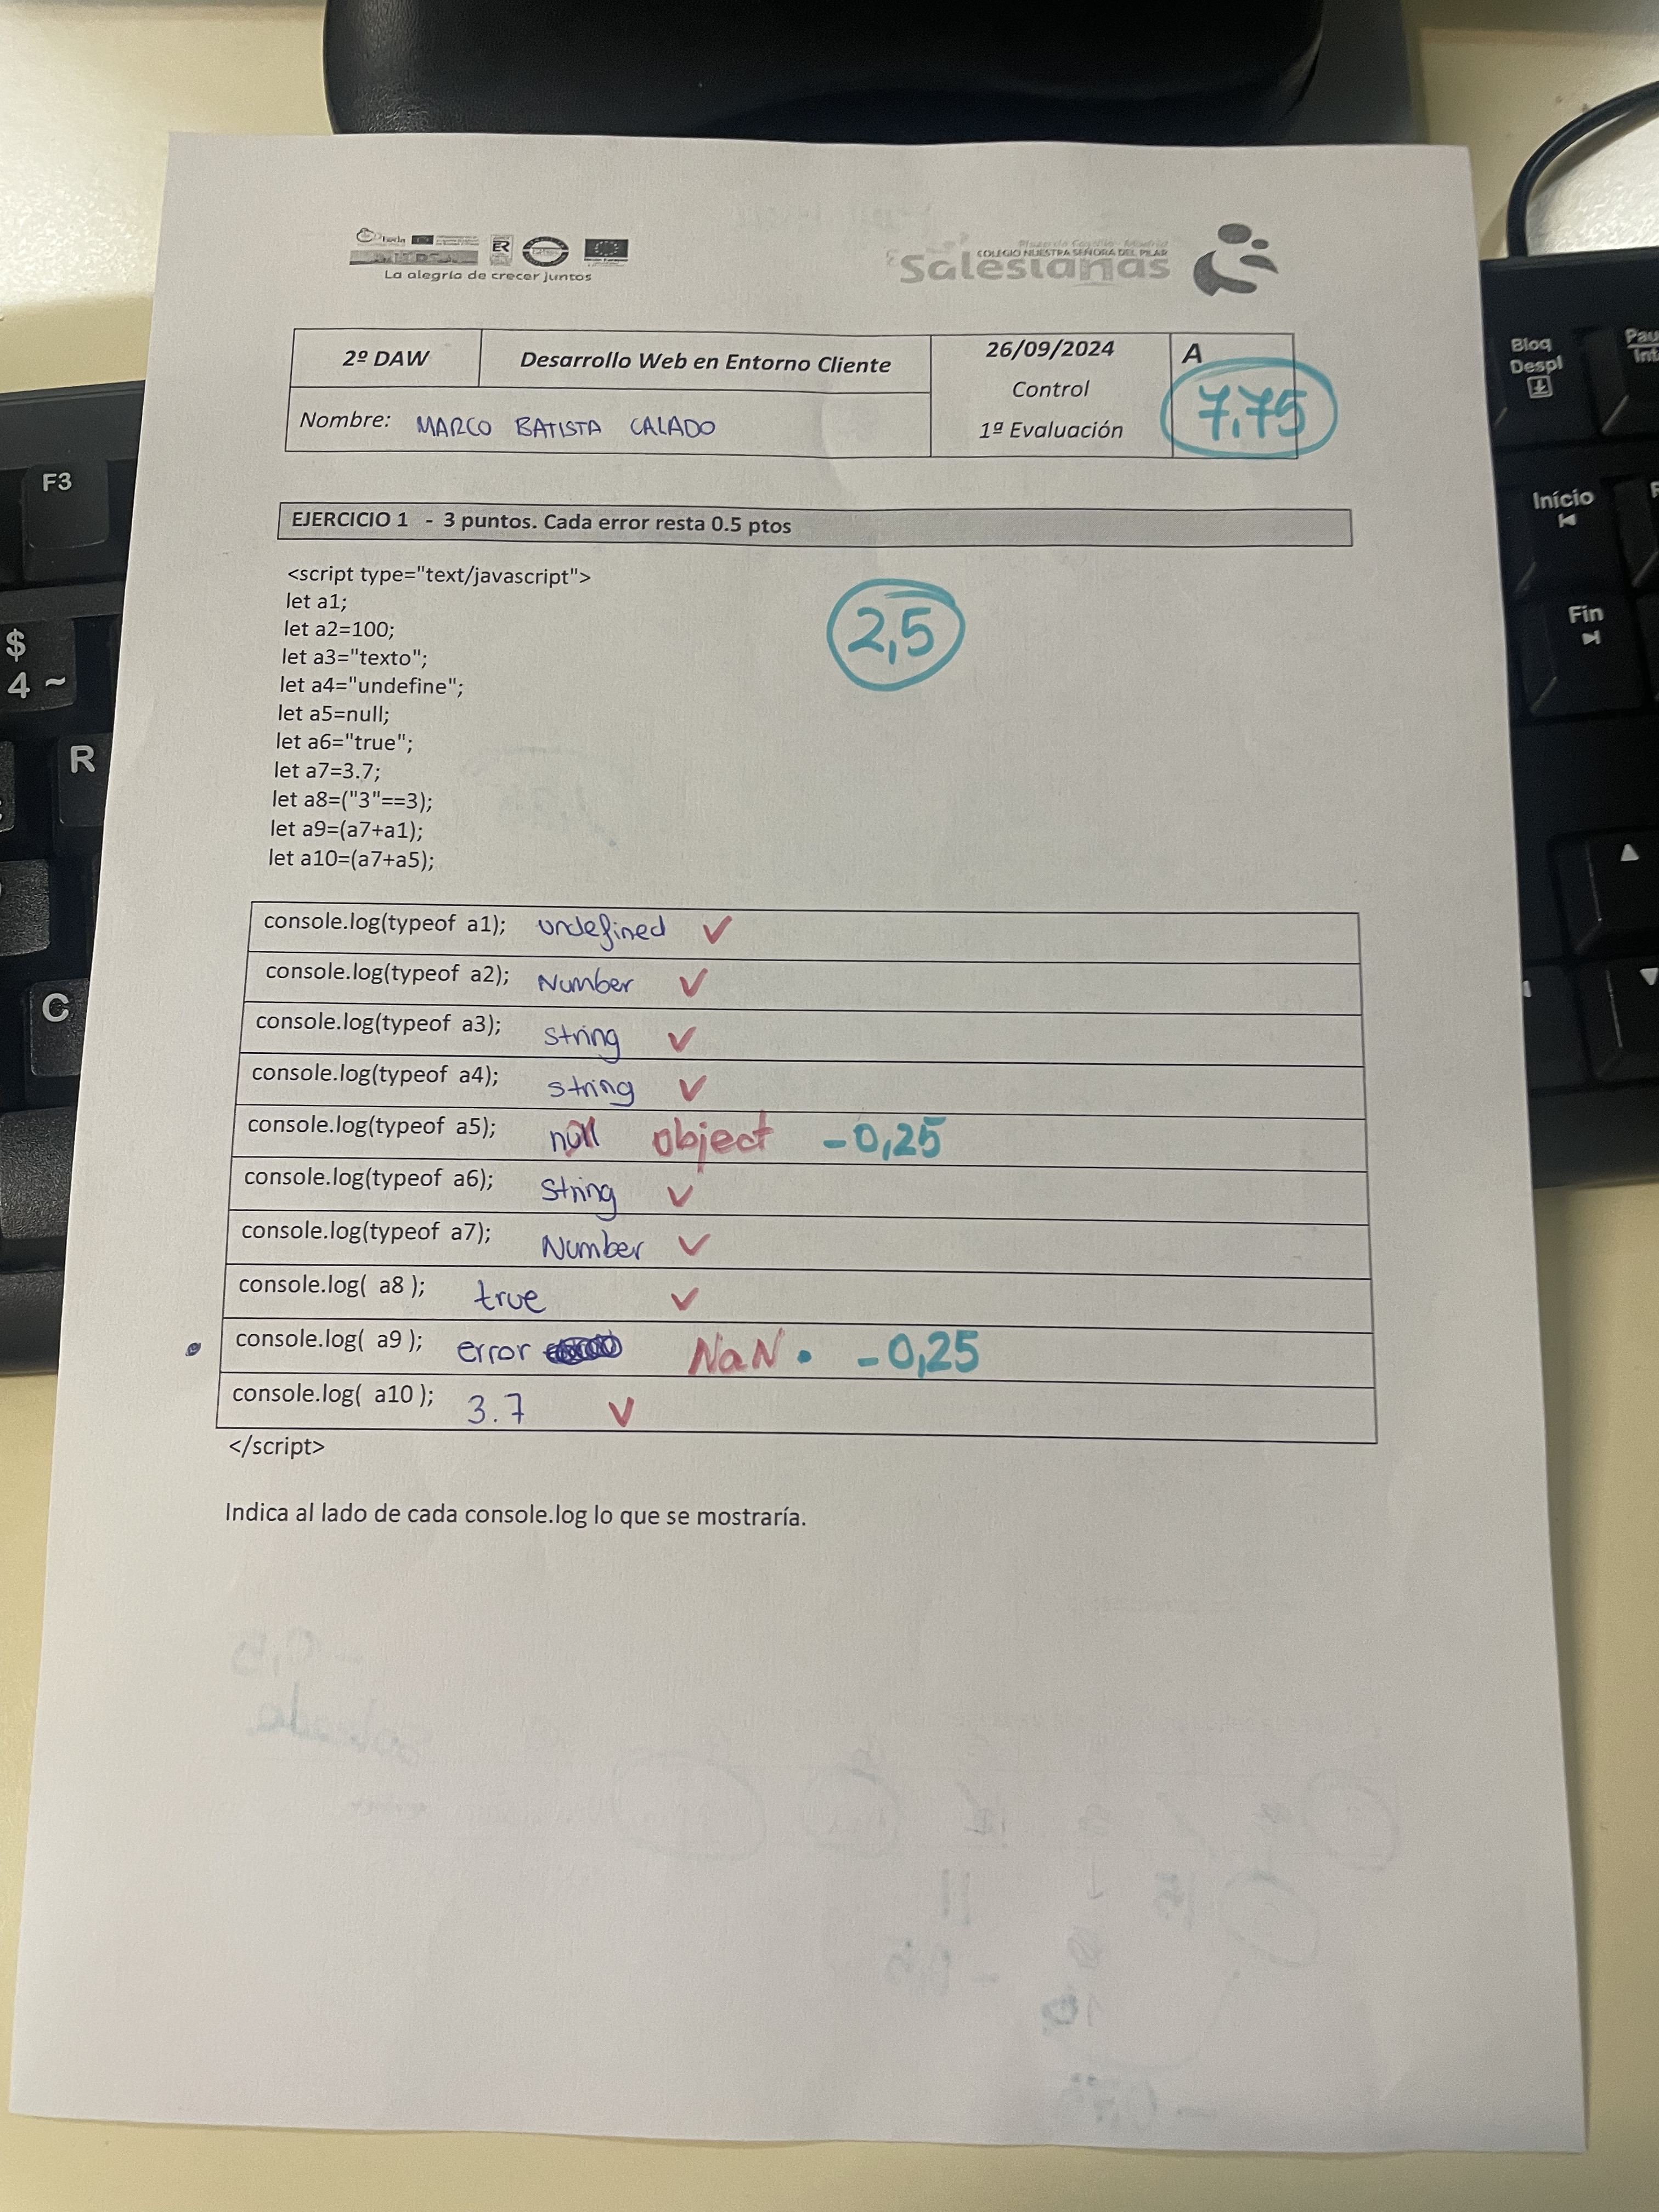 La alegría de crecer juntos
COLEGIO NUESTRA SEÑORA DEL PILAR
Salesianas
2º DAW
Desarrollo Web en Entorno Cliente
26/09/2024
Control
1ª Evaluación
A
7,75
Nombre: MARCO BATISTA CALADO
EJERCICIO 1 - 3 puntos. Cada error resta 0.5 ptos
2,5
<script type="text/javascript">
let a1;
let a2=100;
let a3="texto";
let a4="undefine";
let a5=null;
let a6="true";
let a7=3.7;
let a8=("3"==3);
let a9=(a7+a1);
let a10=(a7+a5);
console.log(typeof a1); undefined ✓
console.log(typeof a2); Number ✓
console.log(typeof a3); string ✓
console.log(typeof a4); string ✓
console.log(typeof a5); null object -0,25
console.log(typeof a6); String ✓
console.log(typeof a7); Number ✓
console.log( a8 ); true ✓
console.log( a9 ); error NaN • -0,25
console.log( a10 ); 3.7 ✓
</script>
Indica al lado de cada console.log lo que se mostraría.
F3
$
4 ~
R
C
Bloq
Despl
Início
Fin